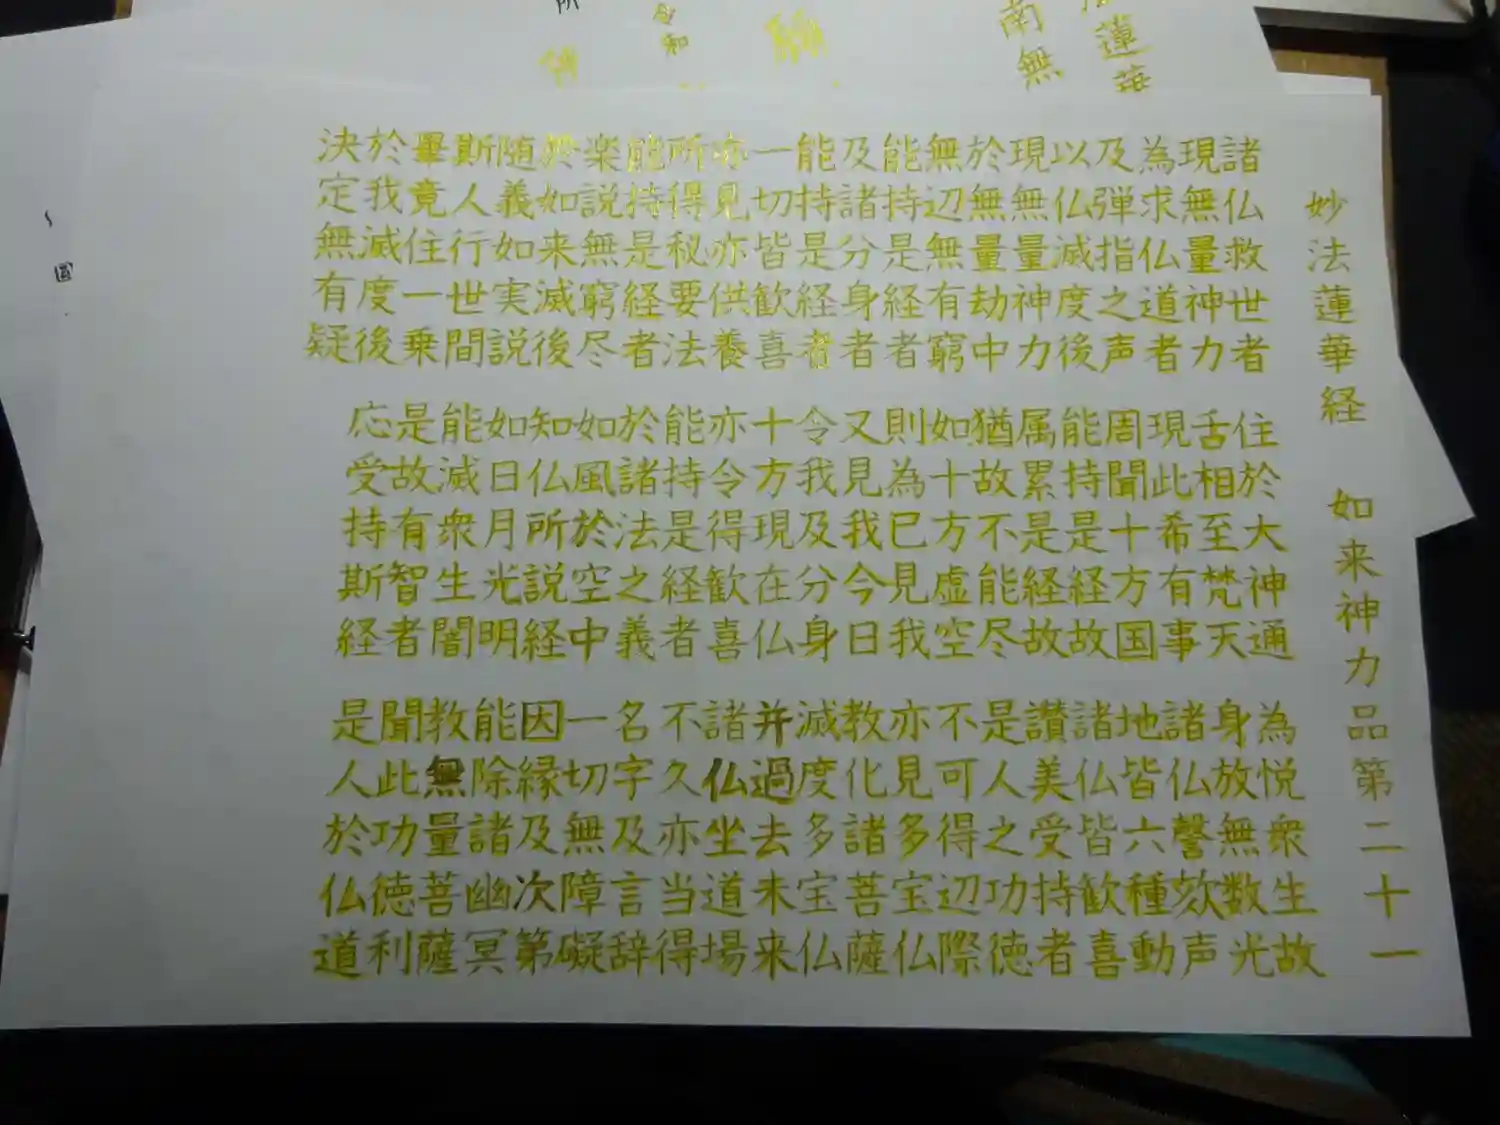 妙法蓮華経 如来神力品第二十一
諸仏救世者 住於大神通 為悦衆生故
現無量神力 舌相至梵天 身放無数光
為求仏道者 現此希有事 諸仏謦欬声
及弾指之声 周聞十方国 地皆六種動
以仏滅度後 能持是経故 諸仏皆歓喜
現無量神力 属累是経故 讃美受持者
於無量劫中 猶故不能尽 是人之功徳
無辺無有窮 如十方虚空 不可得辺際
能持是経者 則為已見我 亦見多宝仏
及諸分身者 又見我今日 教化諸菩薩
能持是経者 令我及分身 滅度多宝仏
一切皆歓喜 十方現在仏 并過去未来
亦見亦供養 亦令得歓喜 諸仏坐道場
所得秘要法 能持是経者 不久亦当得
能持是経者 於諸法之義 名字及言辞
楽説無窮尽 如風於空中 一切無障礙
於如来滅後 知仏所説経 因縁及次第
随義如実説 如日月光明 能除諸幽冥
斯人行世間 能滅衆生闇 教無量菩薩
畢竟住一乗 是故有智者 聞此功徳利
於我滅度後 応受持斯経 是人於仏道
決定無有疑
蓮華
南無